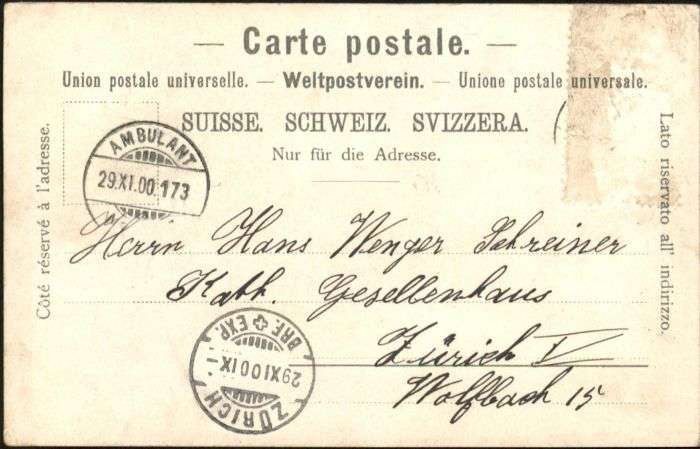 — Carte postale. —
Union postale universelle. — Weltpostverein. — Unione postale universale.
SUISSE. SCHWEIZ. SVIZZERA.
Nur für die Adresse.
Côté réservé à l'adresse.
Lato riservato all' indirizzo.
AMBULANT
29.XI.00.173
Herrn Hans Wenger Schreiner
Kath. Gesellenhaus
Zürich V
Wolfbach 15
BRF. EXP.
29XI.00 IX-
ZÜRICH